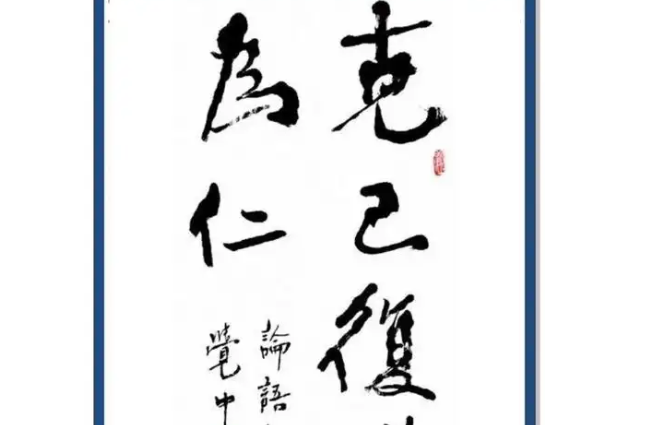 克己復
為仁
論語
覺中